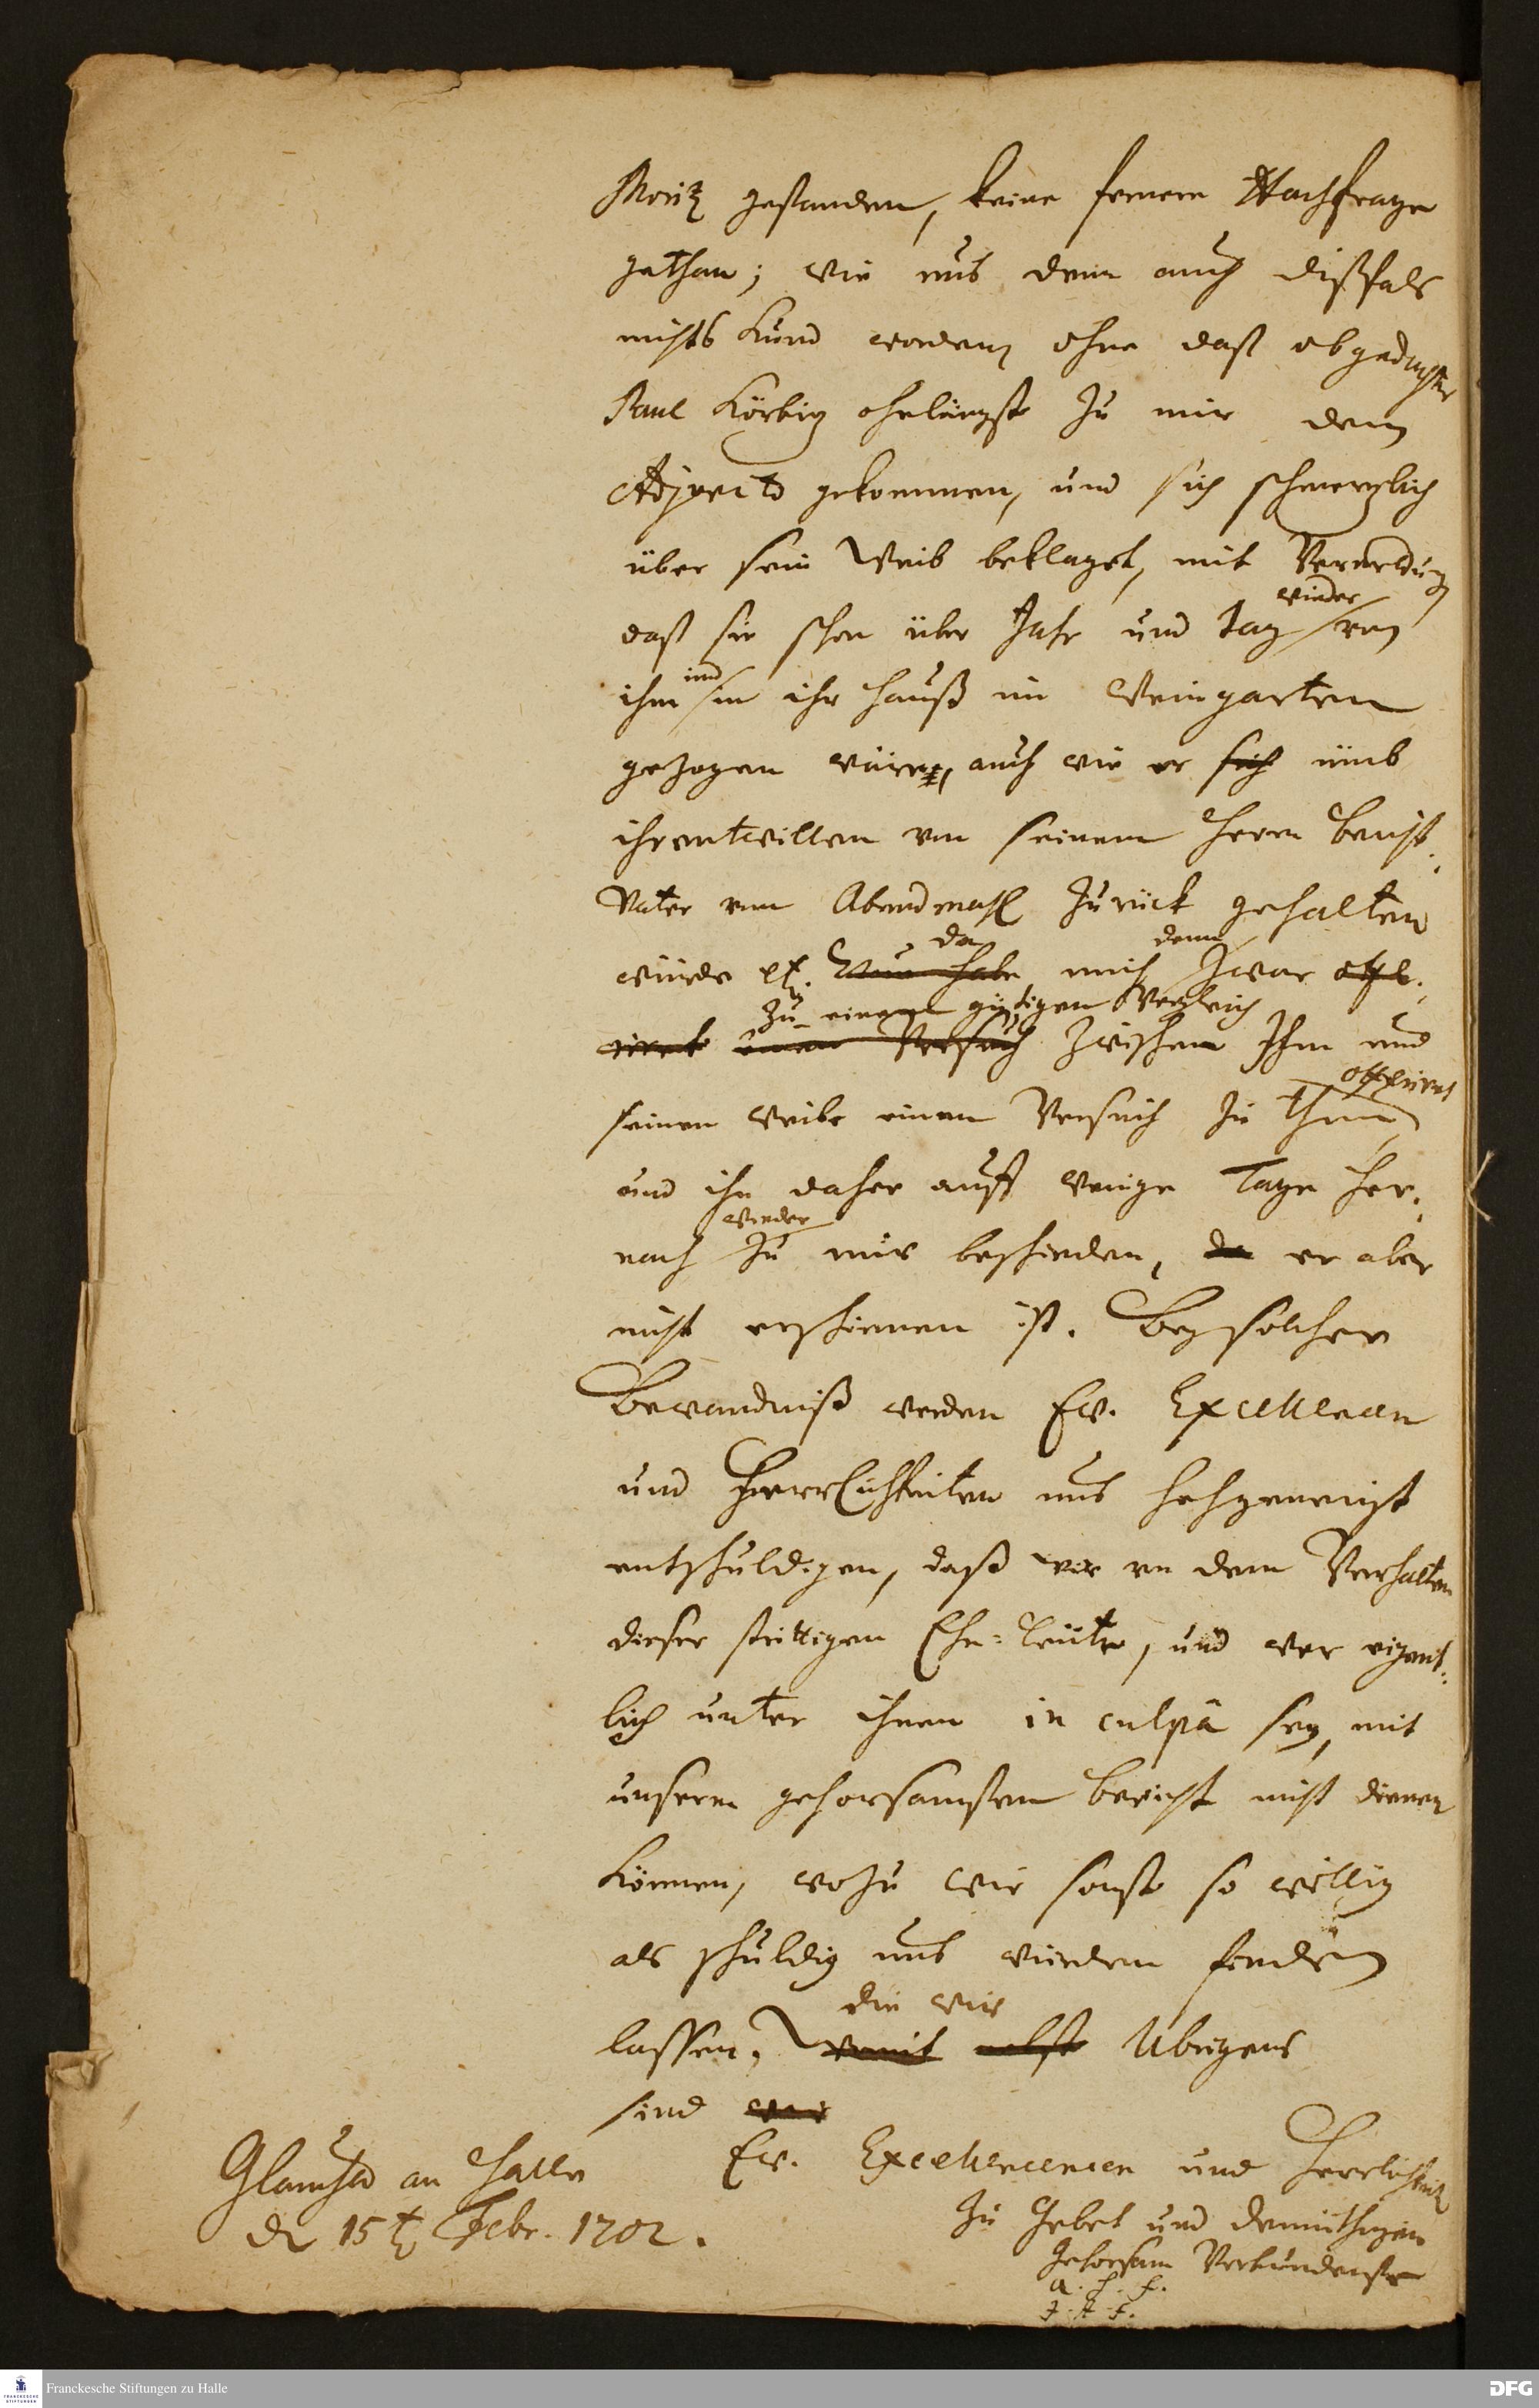 Moritz gestanden, keine fernere Nachfrage
gethan; wie uns denn auch dißfals
nichts kund worden, ohne daß obgedachter
Paul Körbitz ohnlängst zu mir dem
Adjuncto gekommen, und sich schmerzlich
über sein Weib beklaget, mit Vermeldung
daß sie schon über Jahr und Tag wieder von
ihm und in ihr Hauß im Weingarten
gezogen wäre, auch wie er sich ümb
ihrentwillen von seinem Herrn Beicht-
Vater vom Abendmahl zurück gehalten
würde etc. Nun habe da mich denn zwar offe-
riret einen Versuch zu einem gütigen Vergleich zwischen Ihm und
seinem Weibe einen Versuch zu thun offeriret
und ihn daher auff wenige Tage her-
nach wieder zu mir beschieden, da er aber
nicht erschienen ist. Bey solcher
Bewandniß werden Ew. Excellencen
und Herrlichkeiten uns hochgeneigt
entschuldigen, daß wir von dem Verhalten
dieser streitigen Ehe-Leute, und wer eigent-
lich unter ihnen in culpâ sey, mit
unserm gehorsamsten Bericht nicht dienen
können, wozu wir sonst so willig
als schuldig uns würden finden
lassen, womit nebst die wir Ubrigens
sind wir
Ew. Excellencencen und Herrlichkeit
Glaucha an Halle
d 15t Febr. 1702.
Zu Gebet und demüthigen
Gehorsam Verbundenste
A. H. F.
J. A. F.
Franckesche Stiftungen zu Halle
DFG